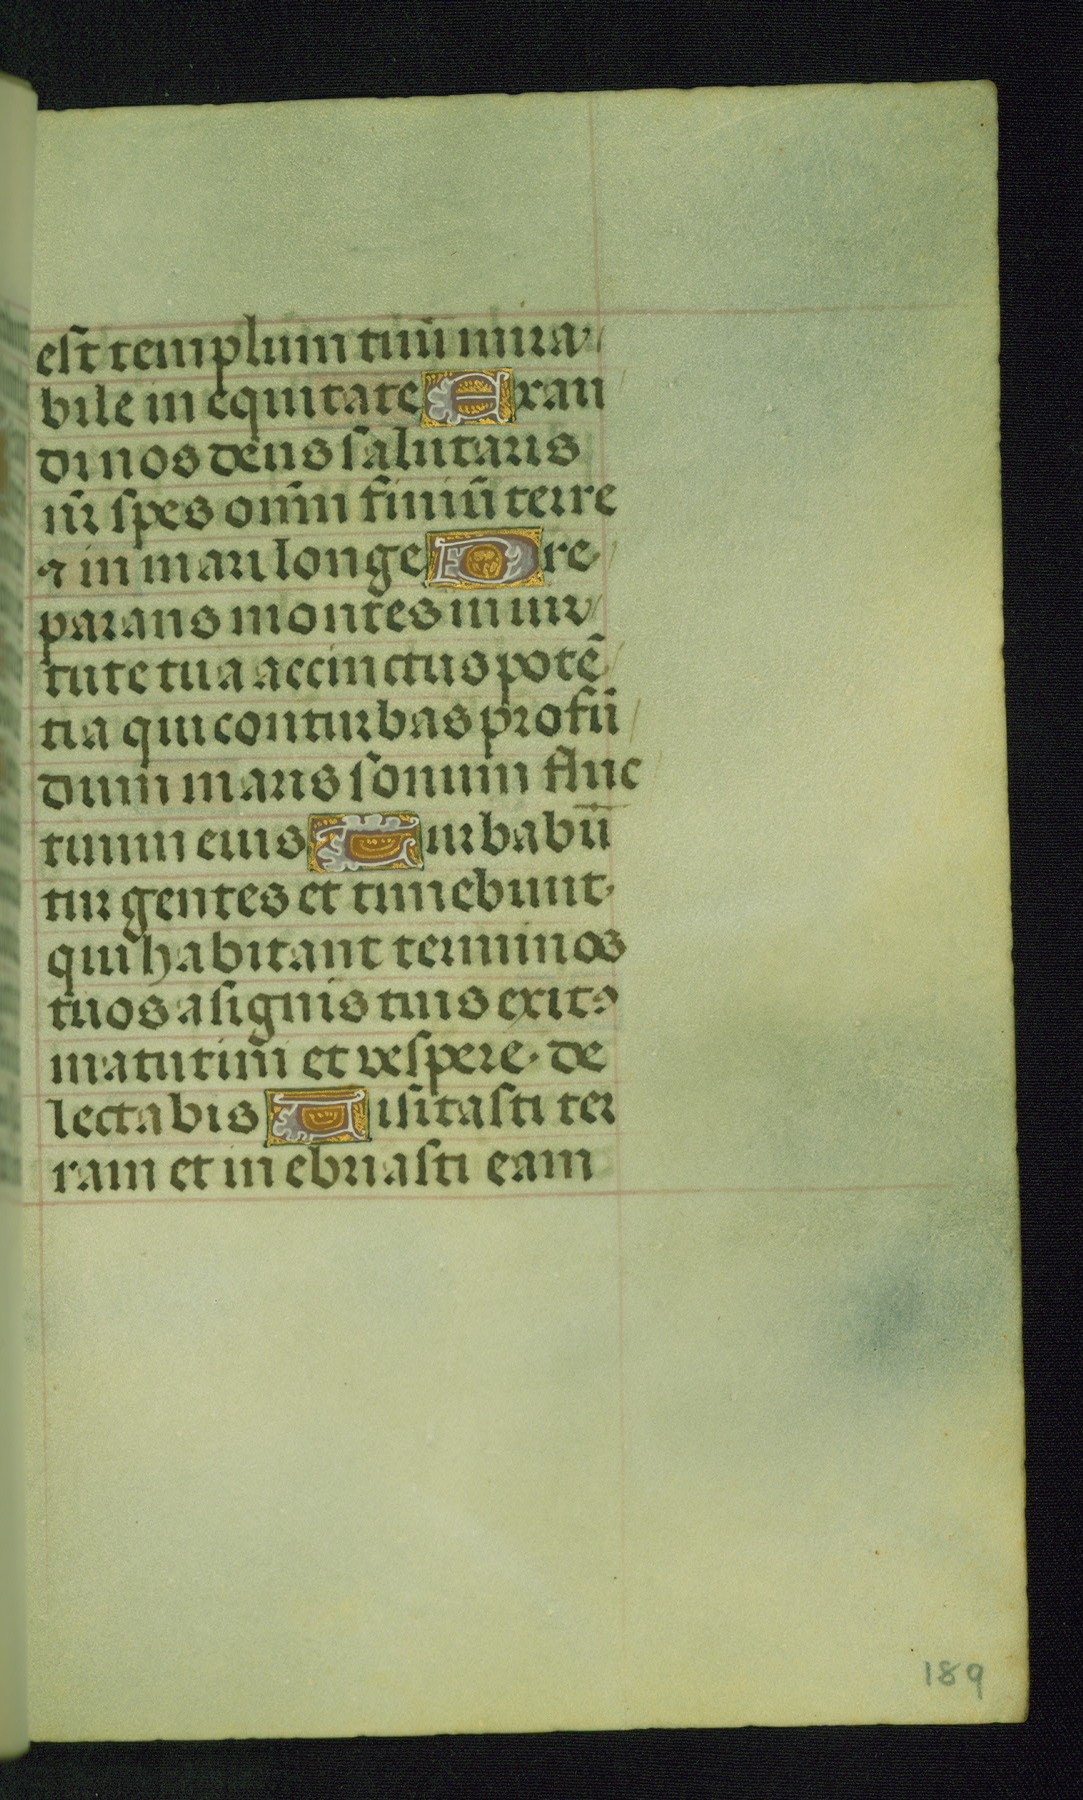 est templum tuū mira
bile in equitate Exau
di nos deus salutaris
nr̄ spes om̄n finiū terre
⁊ in mari longe Pre
parans montes in vir
tute tua accinctus potē
tia qui conturbas profū
dum maris sonum fluc
tuum eius Turbabū
tur gentes et timebunt
qui habitant terminos
tuos a signis tuis exitꝰ
matutini et vespere · de
lectabis Visitasti ter
ram et in ebriasti eam
189